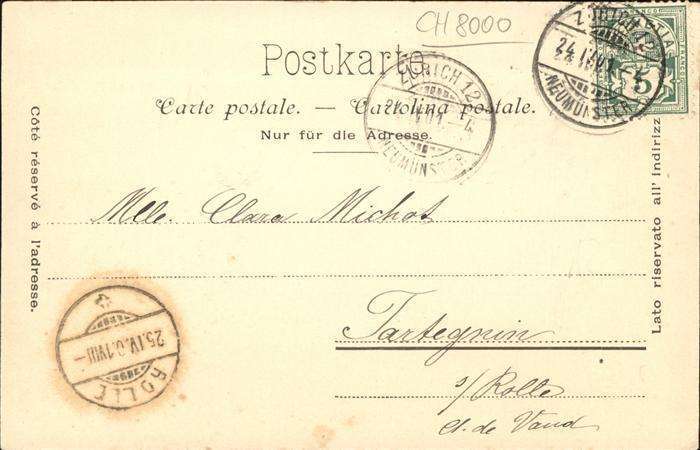 CH 8000
Postkarte
Carte postale. — Cartolina postale.
Nur für die Adresse.
Côté réservé à l'adresse.
Lato riservato all' indirizz
ZÜRICH 12
NEUMÜNSTER
ZÜRICH 12
24.IV.01.–4
NEUMÜNSTER
5
Mlle. Clara Michot
Tartegnin
s/Rolle
Ct. de Vaud
25.IV.01.VII–
ROLLE